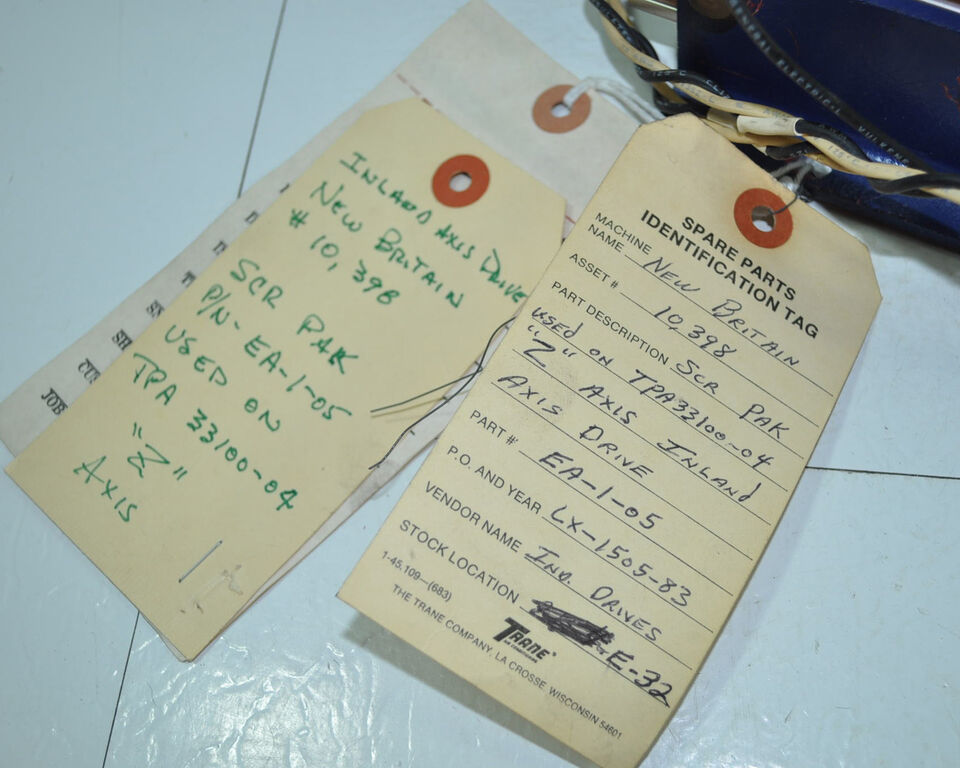 INLAND AXIS DRIVE
NEW BRITAIN
# 10,398
SCR PAK
P/N- EA-1-05
USED ON
TPA 33100-04
"Z"
AXIS
JOB
SPARE PARTS
IDENTIFICATION TAG
MACHINE
NAME NEW BRITAIN
ASSET # 10,398
PART DESCRIPTION SCR PAK
USED ON TPA33100-04
"Z" AXIS INLAND
AXIS DRIVE
PART # EA-1-05
P.O. AND YEAR LX-1505-83
VENDOR NAME IND. DRIVES
STOCK LOCATION E-32
1-45.109—(683)
TRANE
AIR CONDITIONING
THE TRANE COMPANY, LA CROSSE, WISCONSIN 54601
GENERAL ELECTRIC